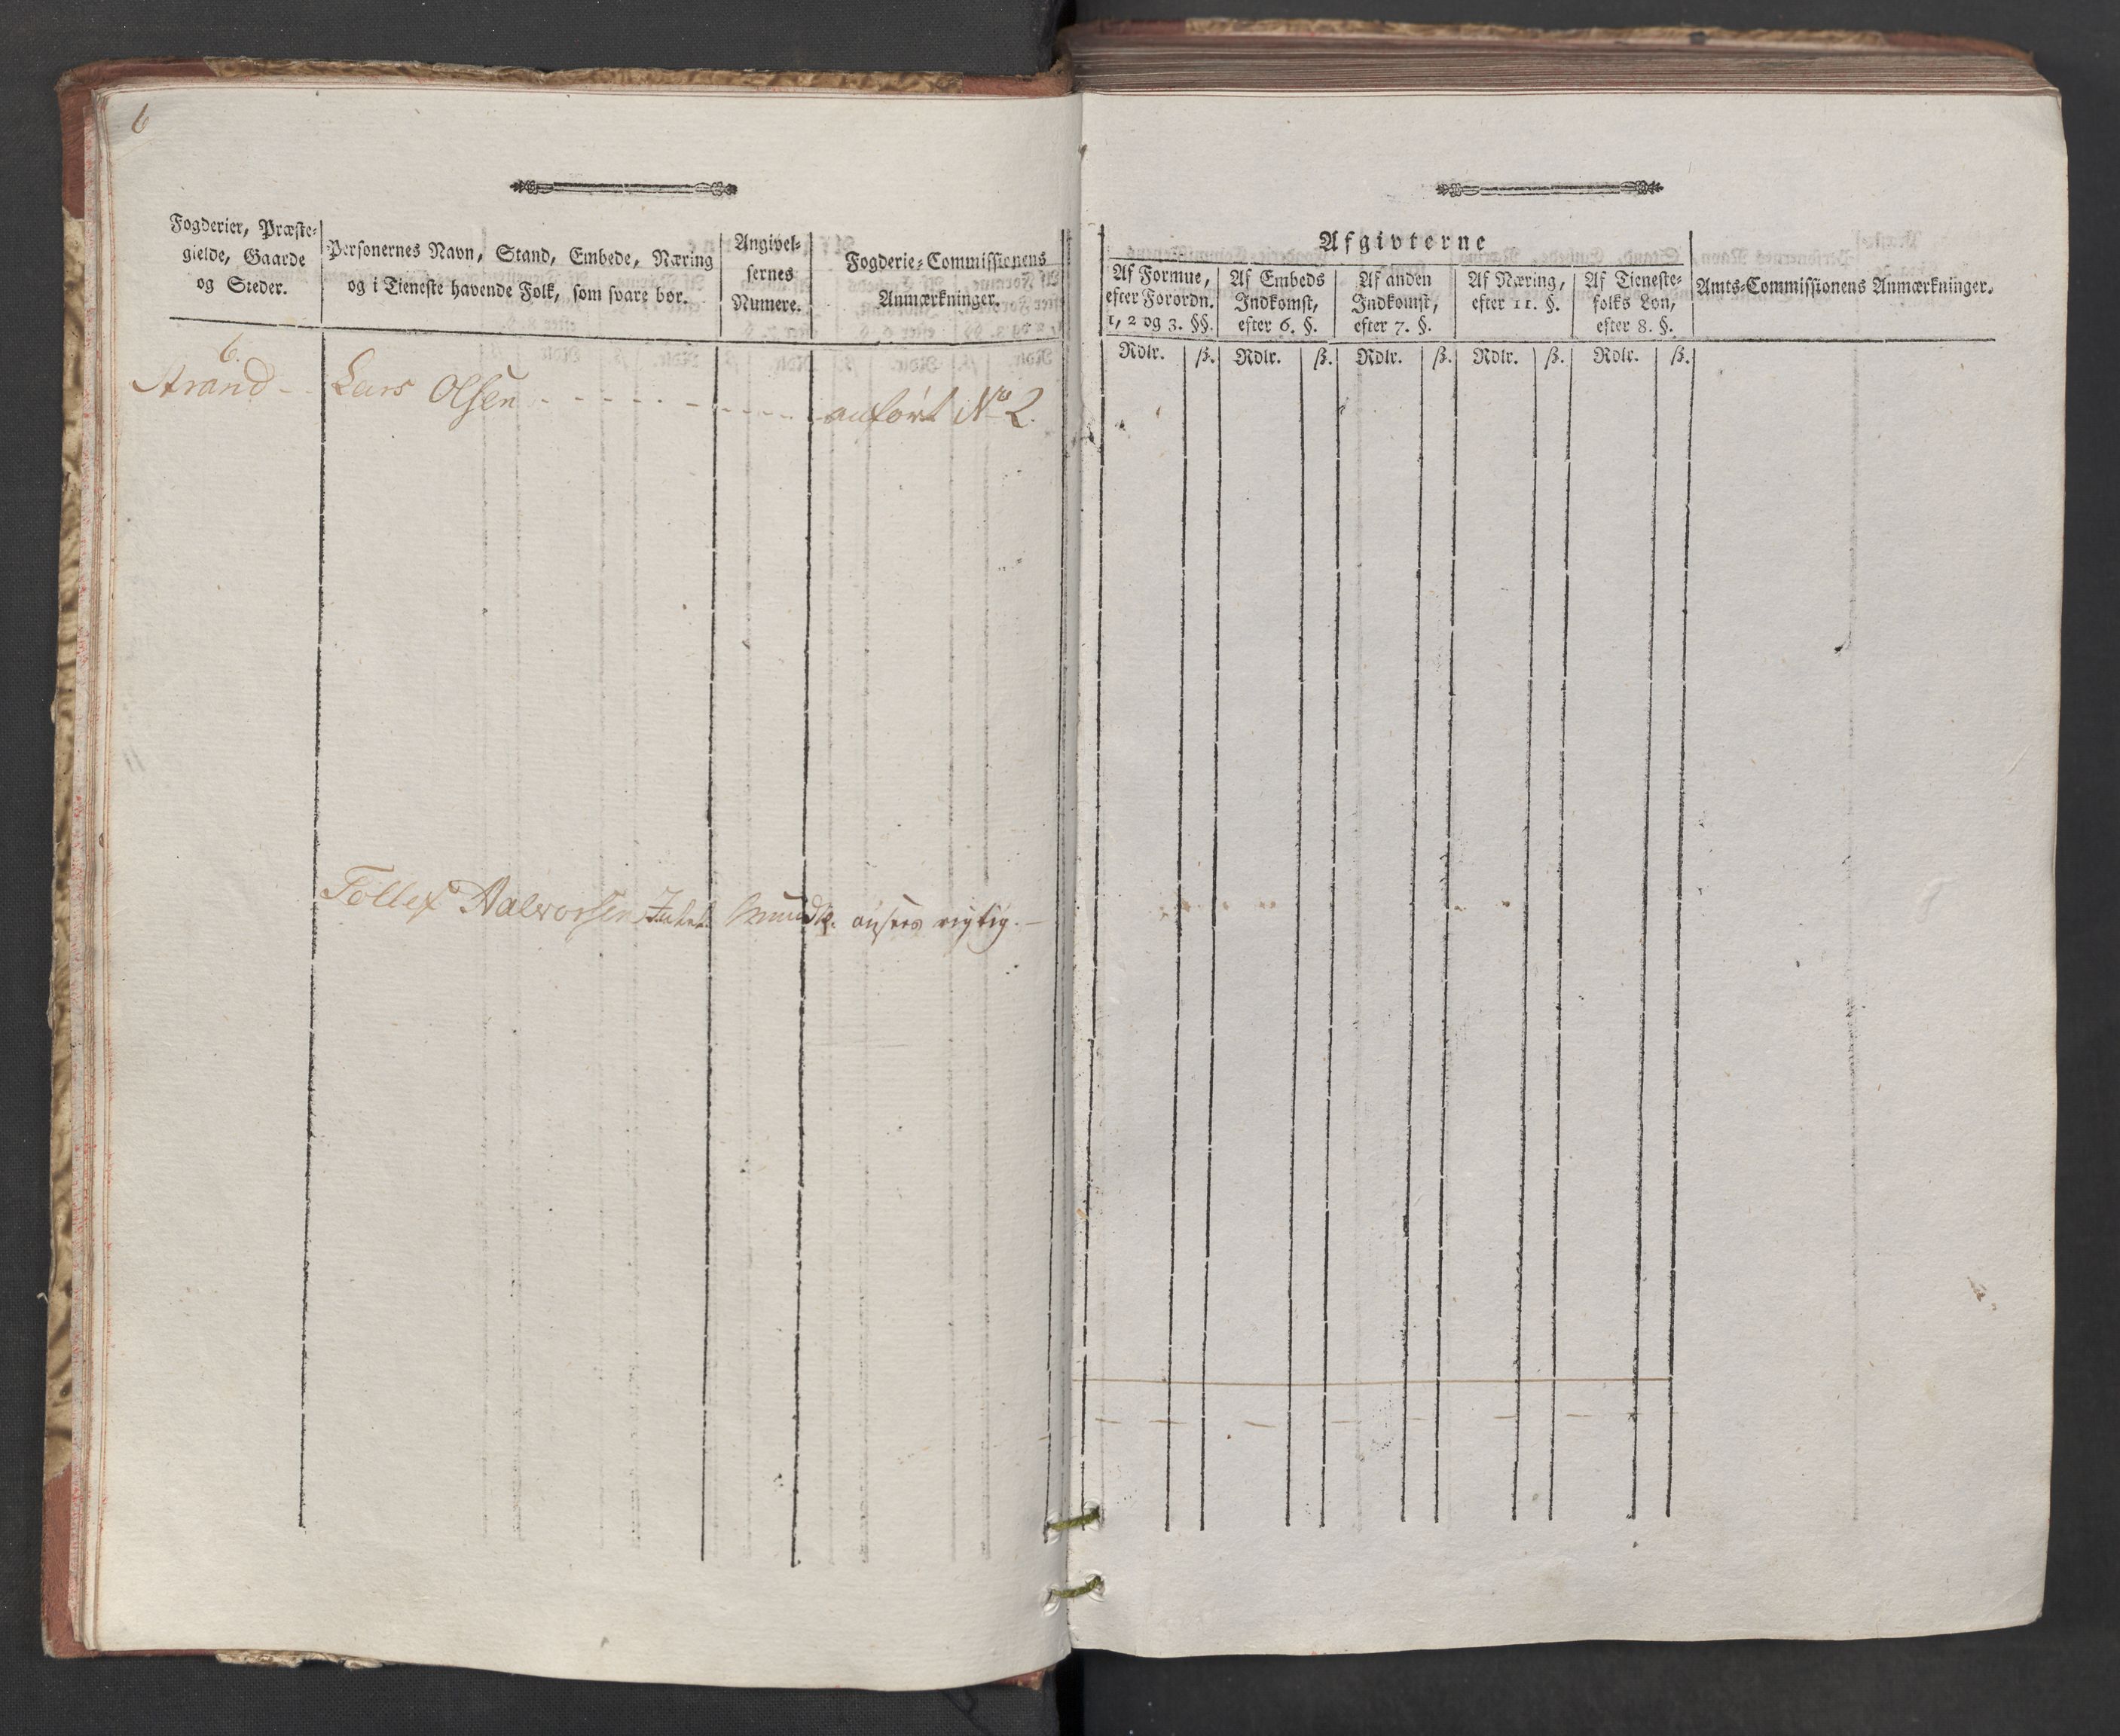 6
Fogderier, Præste-
gielde, Gaarde
og Steder.
Personernes Navn, Stand, Embede, Næring
og i Tieneste havende Folk, som svare bør.
Angivel-
sernes
Numere.
Fogderie-Commissionens
Anmærkninger.
6.
Strand - Lars Olsen - - - - - - - - - anført No 2.
Tollef Aalvorsen Mundtl. ansees rigtig. -
Afgivterne
Af Formue,
efter Forordn.
1, 2 og 3. §§.
Af Embeds
Indkomst,
efter 6. §.
Af anden
Indkomst,
efter 7. §.
Af Næring,
efter 11. §.
Af Tieneste-
folks Løn,
efter 8. §.
Amts-Commissionens Anmærkninger.
Rdlr. ß. Rdlr. ß. Rdlr. ß. Rdlr. ß. Rdlr. ß.